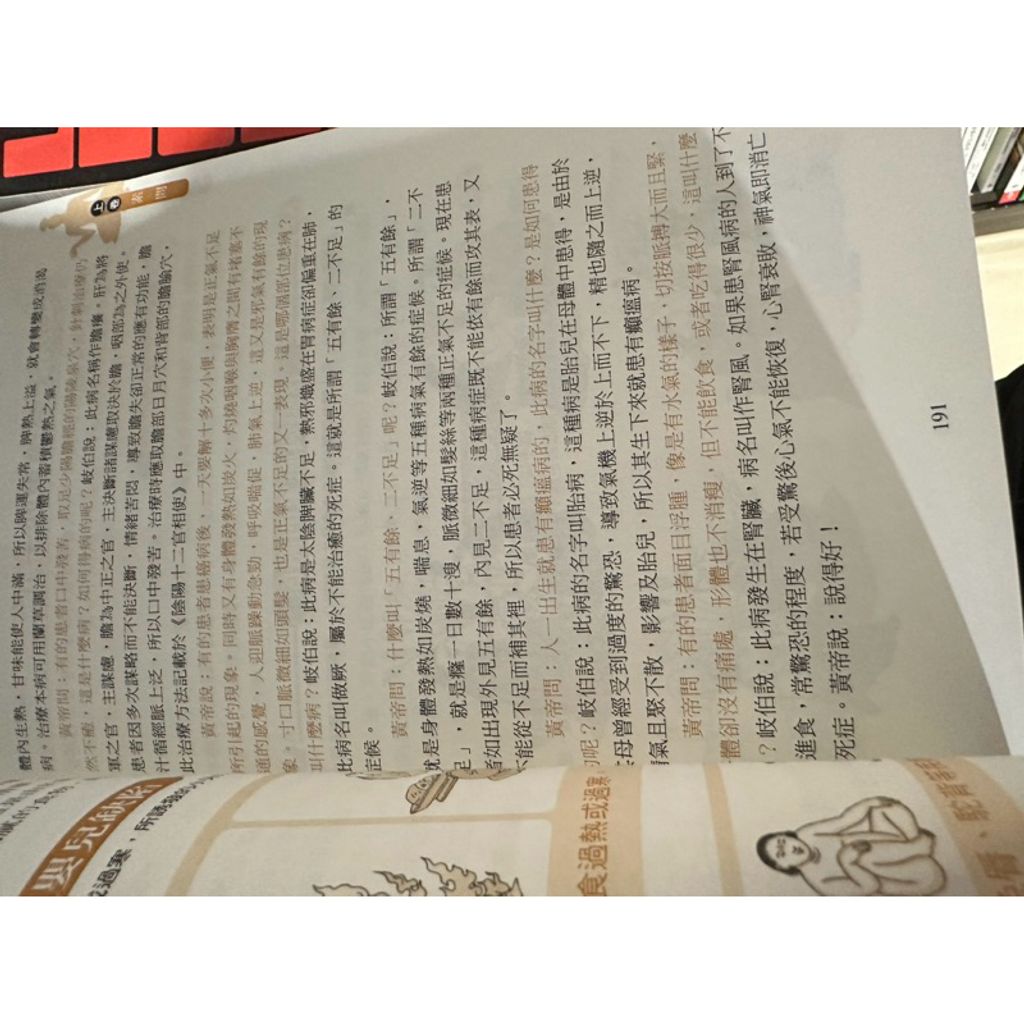 上卷
素問
體內生熱，甘味能使人中滿，所以脾運失常，脾熱上溢，就會轉變成消渴
病。治療本病可用蘭草調治，以排除體內蓄積鬱熱之氣。
黃帝問：有的患者口中發苦，取足少陽膽經的陽陵泉穴，針刺治療仍
然不癒，這是什麼病？如何得病的呢？岐伯說：此病名稱作膽癉。肝為將
軍之官，主謀慮，膽為中正之官，主決斷諸謀慮取決於膽，咽部為之外使。
患者因多次謀略而不能決斷，情緒苦悶，導致膽失卻正常的應有功能，膽
汁循經脈上泛，所以口中發苦。治療時應取膽部日月穴和背部的膽腧穴，
此治療方法記載於《陰陽十二官相使》中。
黃帝說：有的患者患癃病後，一天要解十多次小便，表明是正氣不足
所引起的現象。同時又有身體發熱如炭火，灼燒咽喉與胸膺之間有堵塞不
通的感覺，人迎脈躁動急勁，呼吸喘促，肺氣上逆，這又是邪氣有餘的現
象。寸口脈微細如頭髮，也是正氣不足的又一表現。這是哪個部位患病？
叫什麼病？岐伯說：此病是太陰脾臟不足，熱邪熾盛在胃病症卻偏重在肺，
此病名叫做厥，屬於不能治癒的死症。這就是所謂「五有餘、二不足」的
症候。
黃帝問：什麼叫「五有餘、二不足」呢？岐伯說：所謂「五有餘」，
就是身體發熱如炭燒，喘息，氣逆等五種病氣有餘的症候。所謂「二不
足」，就是癃一日數十溲，脈微細如髮絲等兩種正氣不足的症候。現在患
者如出現外見五有餘，內見二不足，這種病症既不能依有餘而攻其表，又
不能從不足而補其裡，所以患者必死無疑了。
黃帝問：人一出生就患有癲瘟病的，此病的名字叫什麼？是如何患得
的呢？岐伯說：此病的名字叫胎病，這種病是胎兒在母體中患得，是由於
其母曾經受到過度的驚恐，導致氣機上逆於上而不下，精也隨之而上逆，
精氣且聚不散，影響及胎兒，所以其生下來就患有癲瘟病。
黃帝問：有的患者面目浮腫，像是有水氣的樣子，切按脈搏大而且緊，
體卻沒有痛處，形體也不消瘦，但不能飲食，或者吃得很少，這叫什麼
？岐伯說：此病發生在腎臟，病名叫作腎風。如果患腎風病的人到了不
進食，常驚恐的程度，若受驚後心氣不能恢復，心腎衰敗，神氣即消亡
死症。黃帝說：說得好！
191
嬰兒缺給
過寒，所誘發的
食過熱或過寒
駝背